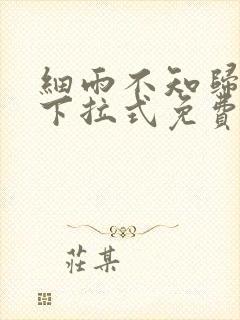 細雨不知歸
下拉式免費
莊某